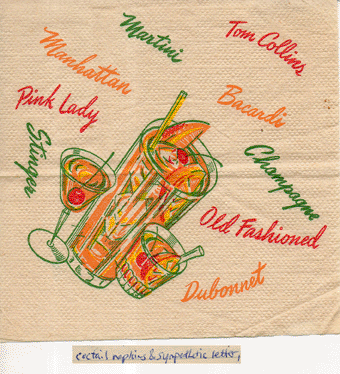 Martini
Tom Collins
Manhattan
Bacardi
Pink Lady
Stinger
Champagne
Old Fashioned
Dubonnet
coctail napkins & sympathetic letter,